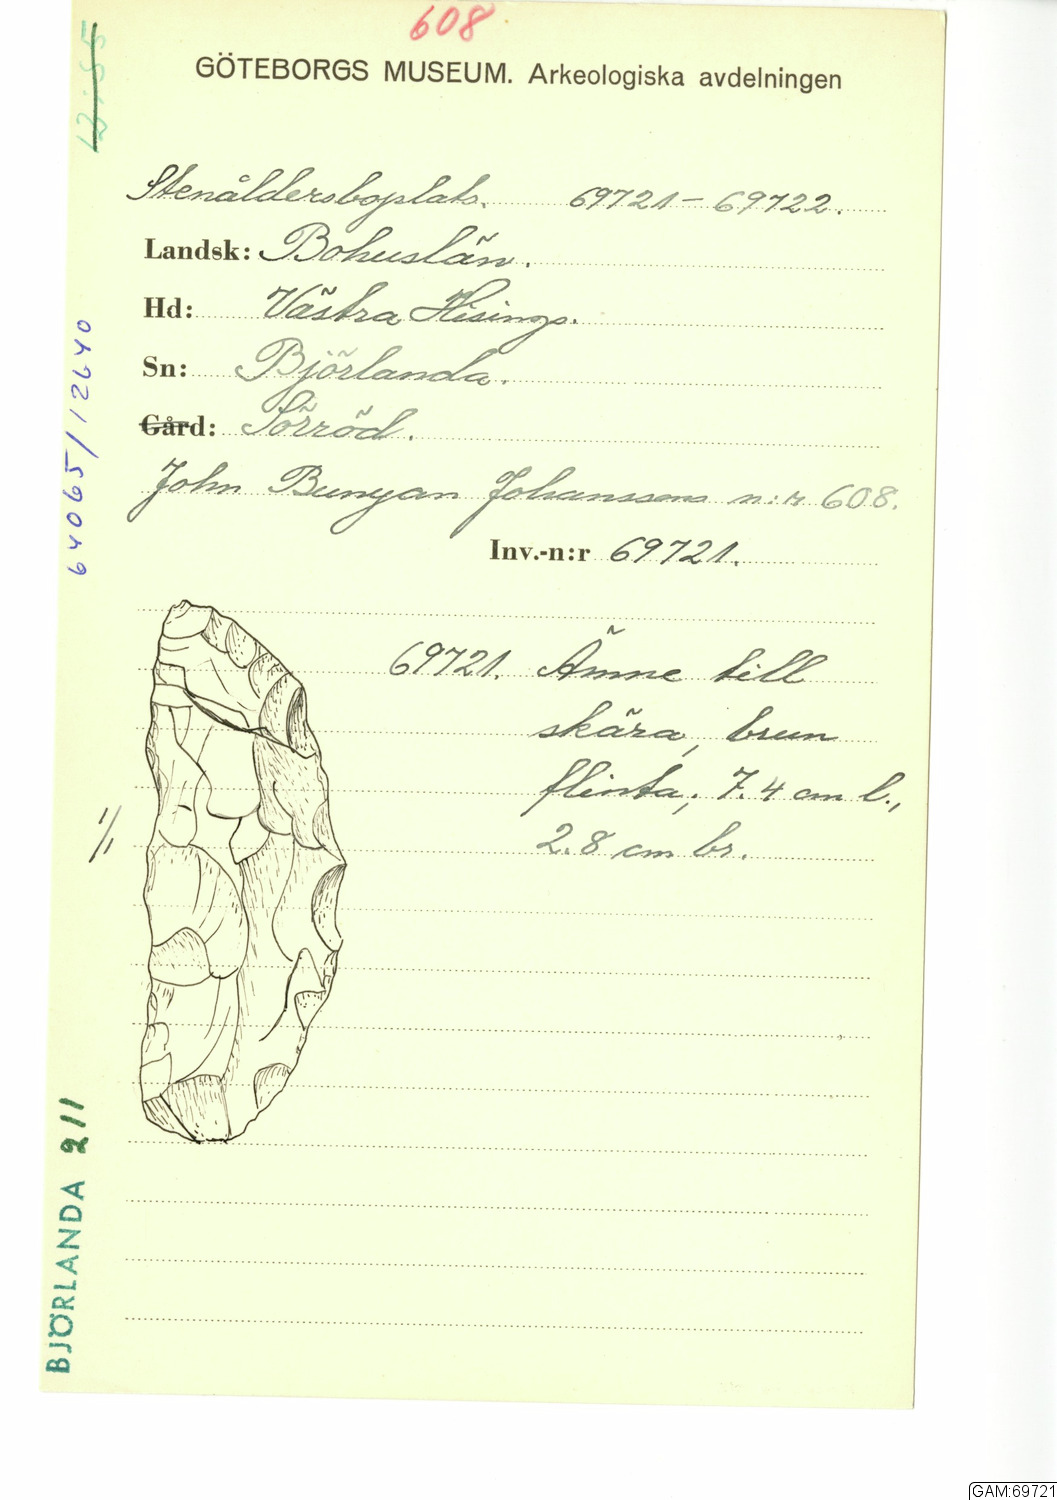 608
GÖTEBORGS MUSEUM. Arkeologiska avdelningen
Stenåldersboplats. 69721-69722.
Landsk: Bohuslän.
Hd: Västra Hisings.
Sn: Björlanda.
Gård: Sörröd.
John Bunyan Johanssons n:r 608.
Inv.-n:r 69721.
69721. Ämne till
skära, brun
flinta; 7.4 cm l.,
2.8 cm br.
1/1
64065/12640
BJÖRLANDA 211
GAM:69721